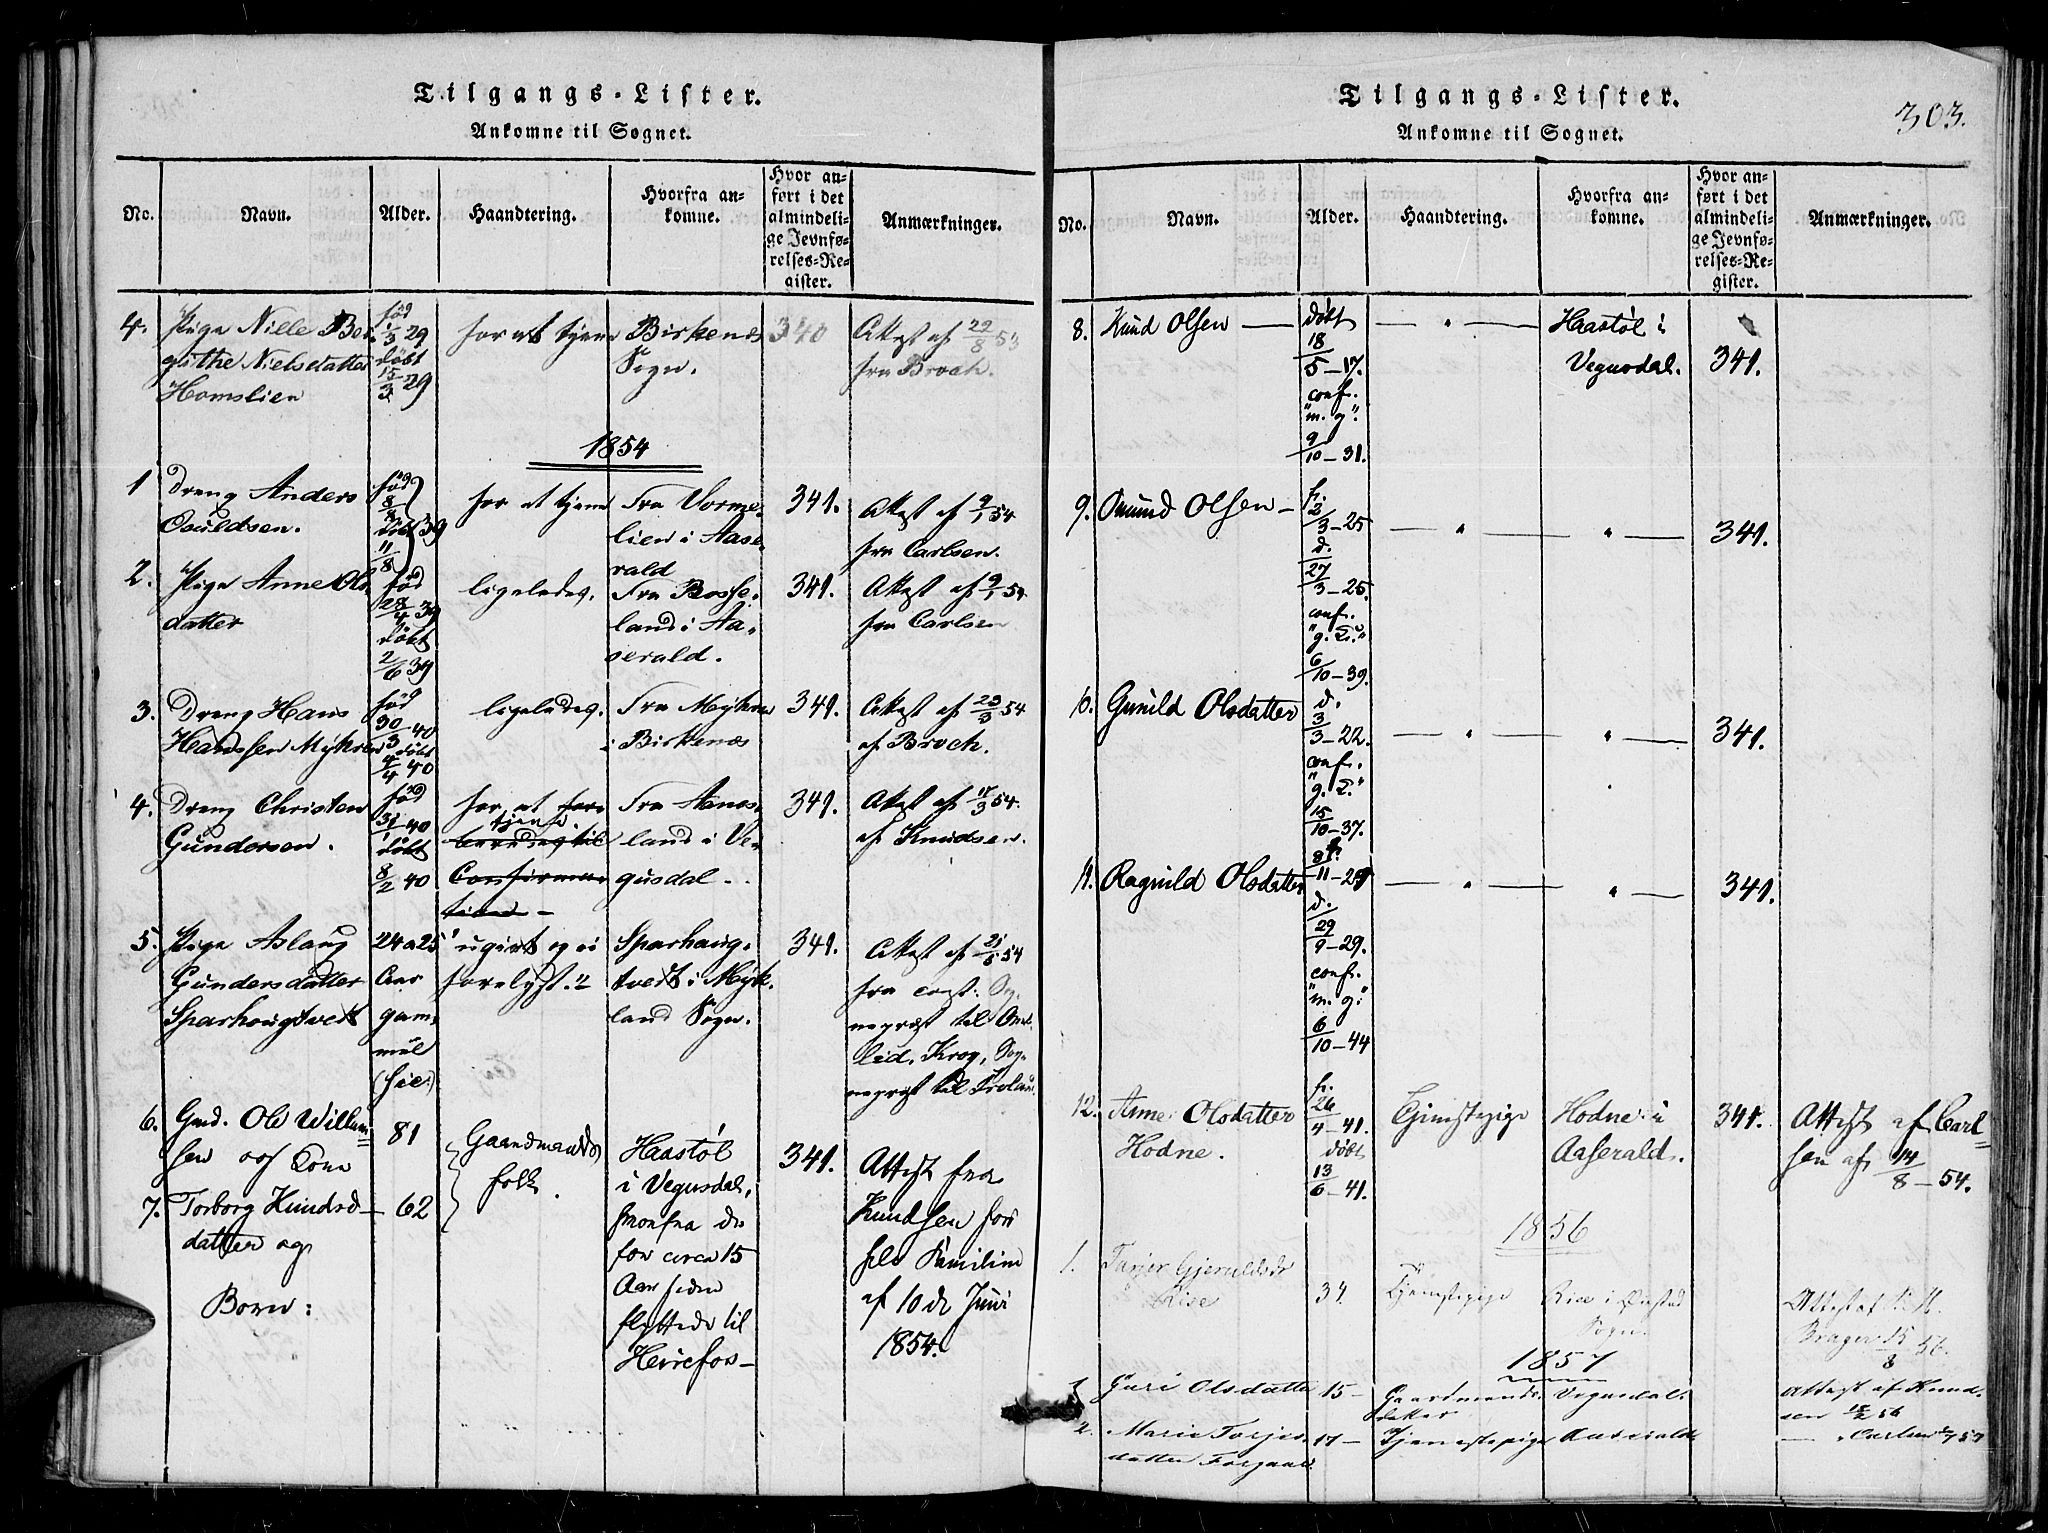 Tilgangs-Lister.
Ankomne til Sognet.
No.
Navn.
Alder.
Haandtering.
Hvorfra an-
komne.
Hvor an-
ført i det
almindeli-
ge Jevnfø-
relses-Re-
gister.
Anmærkninger.
4.
Pige Nille Ber-
githe Nielsdatter
Homslien
fød
1/3 29
døbt
15/3 29
for at tjene
Birkenes
Sogn.
340
Attest af 22/8 53
fra Broch.
1854
1
Dreng Anders
Osuldsen.
fød
8/8
døbt 39
11/8
for at tjene
Fra Vorme-
lien i Aase-
rald
341.
Attest af 9/1 54
fra Carlsen.
2.
Pige Anne Ols-
datter
fød
28/4 39
døbt
2/6 39
ligeledes.
Fra Bosse-
land i Aa-
serald.
341.
Attest af 9/1 54
fra Carlsen
3.
Dreng Hans
Hanssen Myhren
fød
30/3 40
døbt
4/4 40
ligeledes.
Fra Myhren
i Birkenes
341.
Attest af 23/3 54
af Broch.
4.
Dreng Christen
Gundersen.
fød
31/1 40
døbt
8/2 40
for at for-
tjene
beredes til
Confirma-
tion -
Fra Aanes-
land i Ve-
gusdal -
341.
Attest af 17/3 54.
af Knudsen.
5.
Pige Aslaug
Gundersdatter
Sparhougtvedt
24 a 25
Aar
gam-
mel
(sic:)
"ugivt og ei
forelyst."
Sparhaug-
tvedt i Myk-
land Sogn.
341.
Attest af 21/5 54
fra const: Sog-
nepræst til Om-
lid, Krog, Sog-
nepræst til Froland
6.
Gmd. Ole Willum-
sen og Kone
81
Gaardmands
folk.
Haastøl
i Vegusdal,
hvorfra de
for circa 15
Aar siden
flyttede til
Herefos-
341.
Attest fra
Knudsen for
hele Familien
af 10de Juni
1854.
7.
Torborg Knuds-
datter og
Børn:
62
Tilgangs-Lister.
303.
Ankomne til Sognet.
No.
Navn.
Alder.
Haandtering.
Hvorfra an-
komne.
Hvor an-
ført i det
almindeli-
ge Jevnfø-
relses-Re-
gister.
Anmærkninger.
8.
Knud Olsen —
døbt
18/5 - 17.
conf.
"m. g."
9/10 - 31.
— " —
Haastøl i
Vegusdal.
341.
9.
Omund Olsen -
f.
2/3 - 25
d.
27/3 - 25.
conf.
"g. T."
6/10 - 39.
— " —
— " —
341.
10.
Gunild Olsdatter
d.
3/3 - 22.
conf.
"g. T."
15/10 - 37.
— " —
— " —
341.
11.
Ragnild Olsdatter
f.
8/11 - 29
d.
29/9 - 29.
conf.
"m. g."
6/10 - 44
— " —
— " —
341.
12.
Anne Olsdatter
Hodne.
f.
26/4 - 41.
døbt
13/6 - 41.
Tjenestepige
Hodne i
Aaserald.
341.
Attest af Carl-
sen af 14/8 - 54.
1856
1.
Tarjer Gjeruldsdr
Rise
34.
Tjenestepige
Rise i Øiestad
Sogn.
Attest af
Brager 15/8 56.
1857
1
Guri Olsdatter
15 -
Gaardmands-
datter
Vegusdal.
Attest af Knud-
sen 18/2 56
2.
Marie Torjes-
datter Forgaard.
17 -
Tjenestepige
Aaserald
— " Carlsen 57